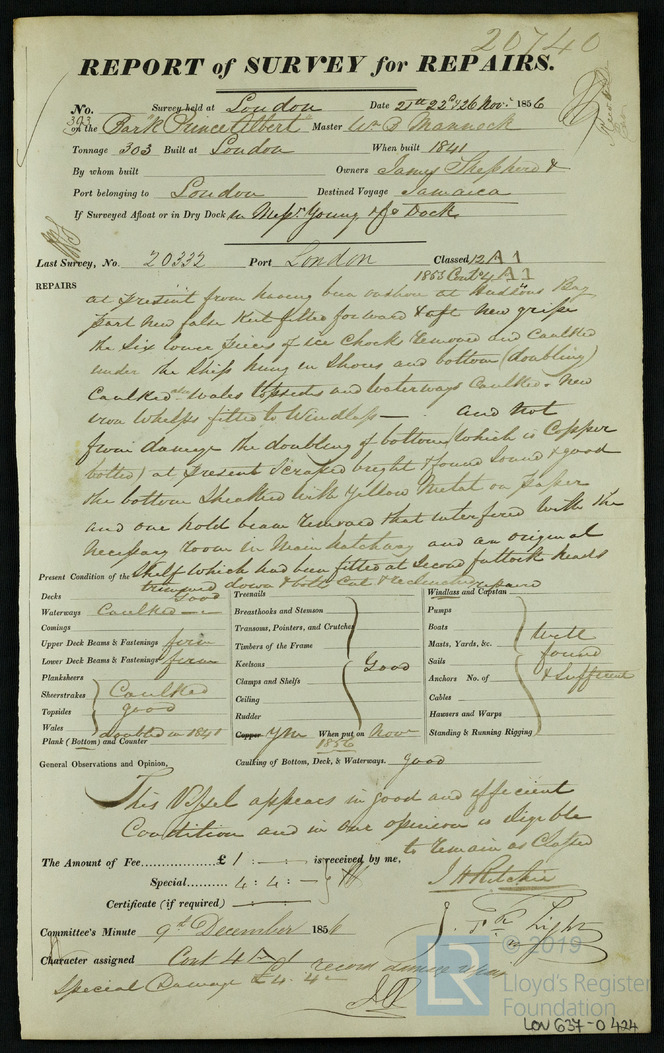 20740
REPORT of SURVEY for REPAIRS.
No. 303 Survey held at London Date 21st 22d & 26 Novr. 1856
on the Bark "Prince Albert" Master Wm B Mannock
Tonnage 303 Built at London When built 1841
By whom built Owners James Shepherd &
Port belonging to London Destined Voyage Jamaica
If Surveyed Afloat or in Dry Dock in Messrs. Young & Co Dock
Last Survey, No. 20332 Port London Classed 12 A 1
1853 Contd 4 A 1
REPAIRS
at present from having been onshore at Hudsons Bay
part new false Keel fitted forward & aft new gripe
the six lower pieces of ice chock removed and caulked
under the Ship hung in Shores and bottom (doubling)
Caulked also wales topsides and waterways Caulked. New
iron whelps fitted to Windlass — and Not
from damage the doubling of bottom (which is Copper
bolted) at present Scraped bright & found Sound & good
the bottom Sheathed with Yellow Metal on paper
and one hold beam removed that interfered with the
necessary room in Main hatchway and an original
Shelf which had been fitted at Second futtock heads
trimmed down & bolts Cut & reclenched repaired
Present Condition of the
Decks Good
Waterways Caulked
Comings
Upper Deck Beams & Fastenings firm
Lower Deck Beams & Fastenings firm
Planksheers
Sheerstrakes Caulked
Topsides good
Wales doubled in 1841
Plank (Bottom) and Counter
Treenails
Breasthooks and Stemson
Transoms, Pointers, and Crutches
Timbers of the Frame
Keelsons Good
Clamps and Shelfs
Ceiling
Rudder
Copper YM When put on Novr
1856
Windlass and Capstan
Pumps
Boats Well
Masts, Yards, &c. found
Sails & Sufficient
Anchors No. of
Cables
Hawsers and Warps
Standing & Running Rigging
General Observations and Opinion, Caulking of Bottom, Deck, & Waterways. good
This Vessel appears in good and efficient
Condition and in our opinion is eligible
to remain as Classed
The Amount of Fee £ 1 : — : — is received by me,
Special 4 : 4 : — J H Ritchie
Certificate (if required)
J. Light
Committee's Minute 9th December 1856
Character assigned Cont 4
Special Damage £4. 4
© 2019
LR
Lloyd's Register
Foundation
LON 637-0424